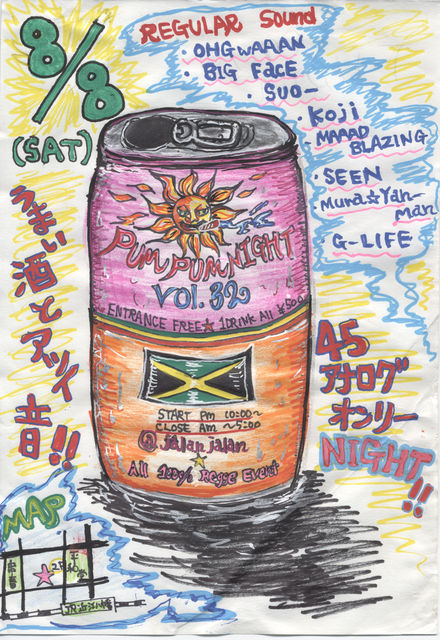 8/8
(SAT)
REGULAR Sound
・OHGWAAAN
・BIG FACE
・SUO-
・Koji
・MAAAD
BLAZING
・SEEN
・Muna☆Yah-
man
G-LIFE
うまい酒とアツイ音!!
PUM PUM NIGHT
VOL.32
ENTRANCE FREE☆1DRINK All ¥500
START PM 10:00~
CLOSE AM ~5:00
@jalan jalan
All 100% Regge Event
45
アナログ
オンリー
NIGHT!!
MAP
2F
JR近江八幡